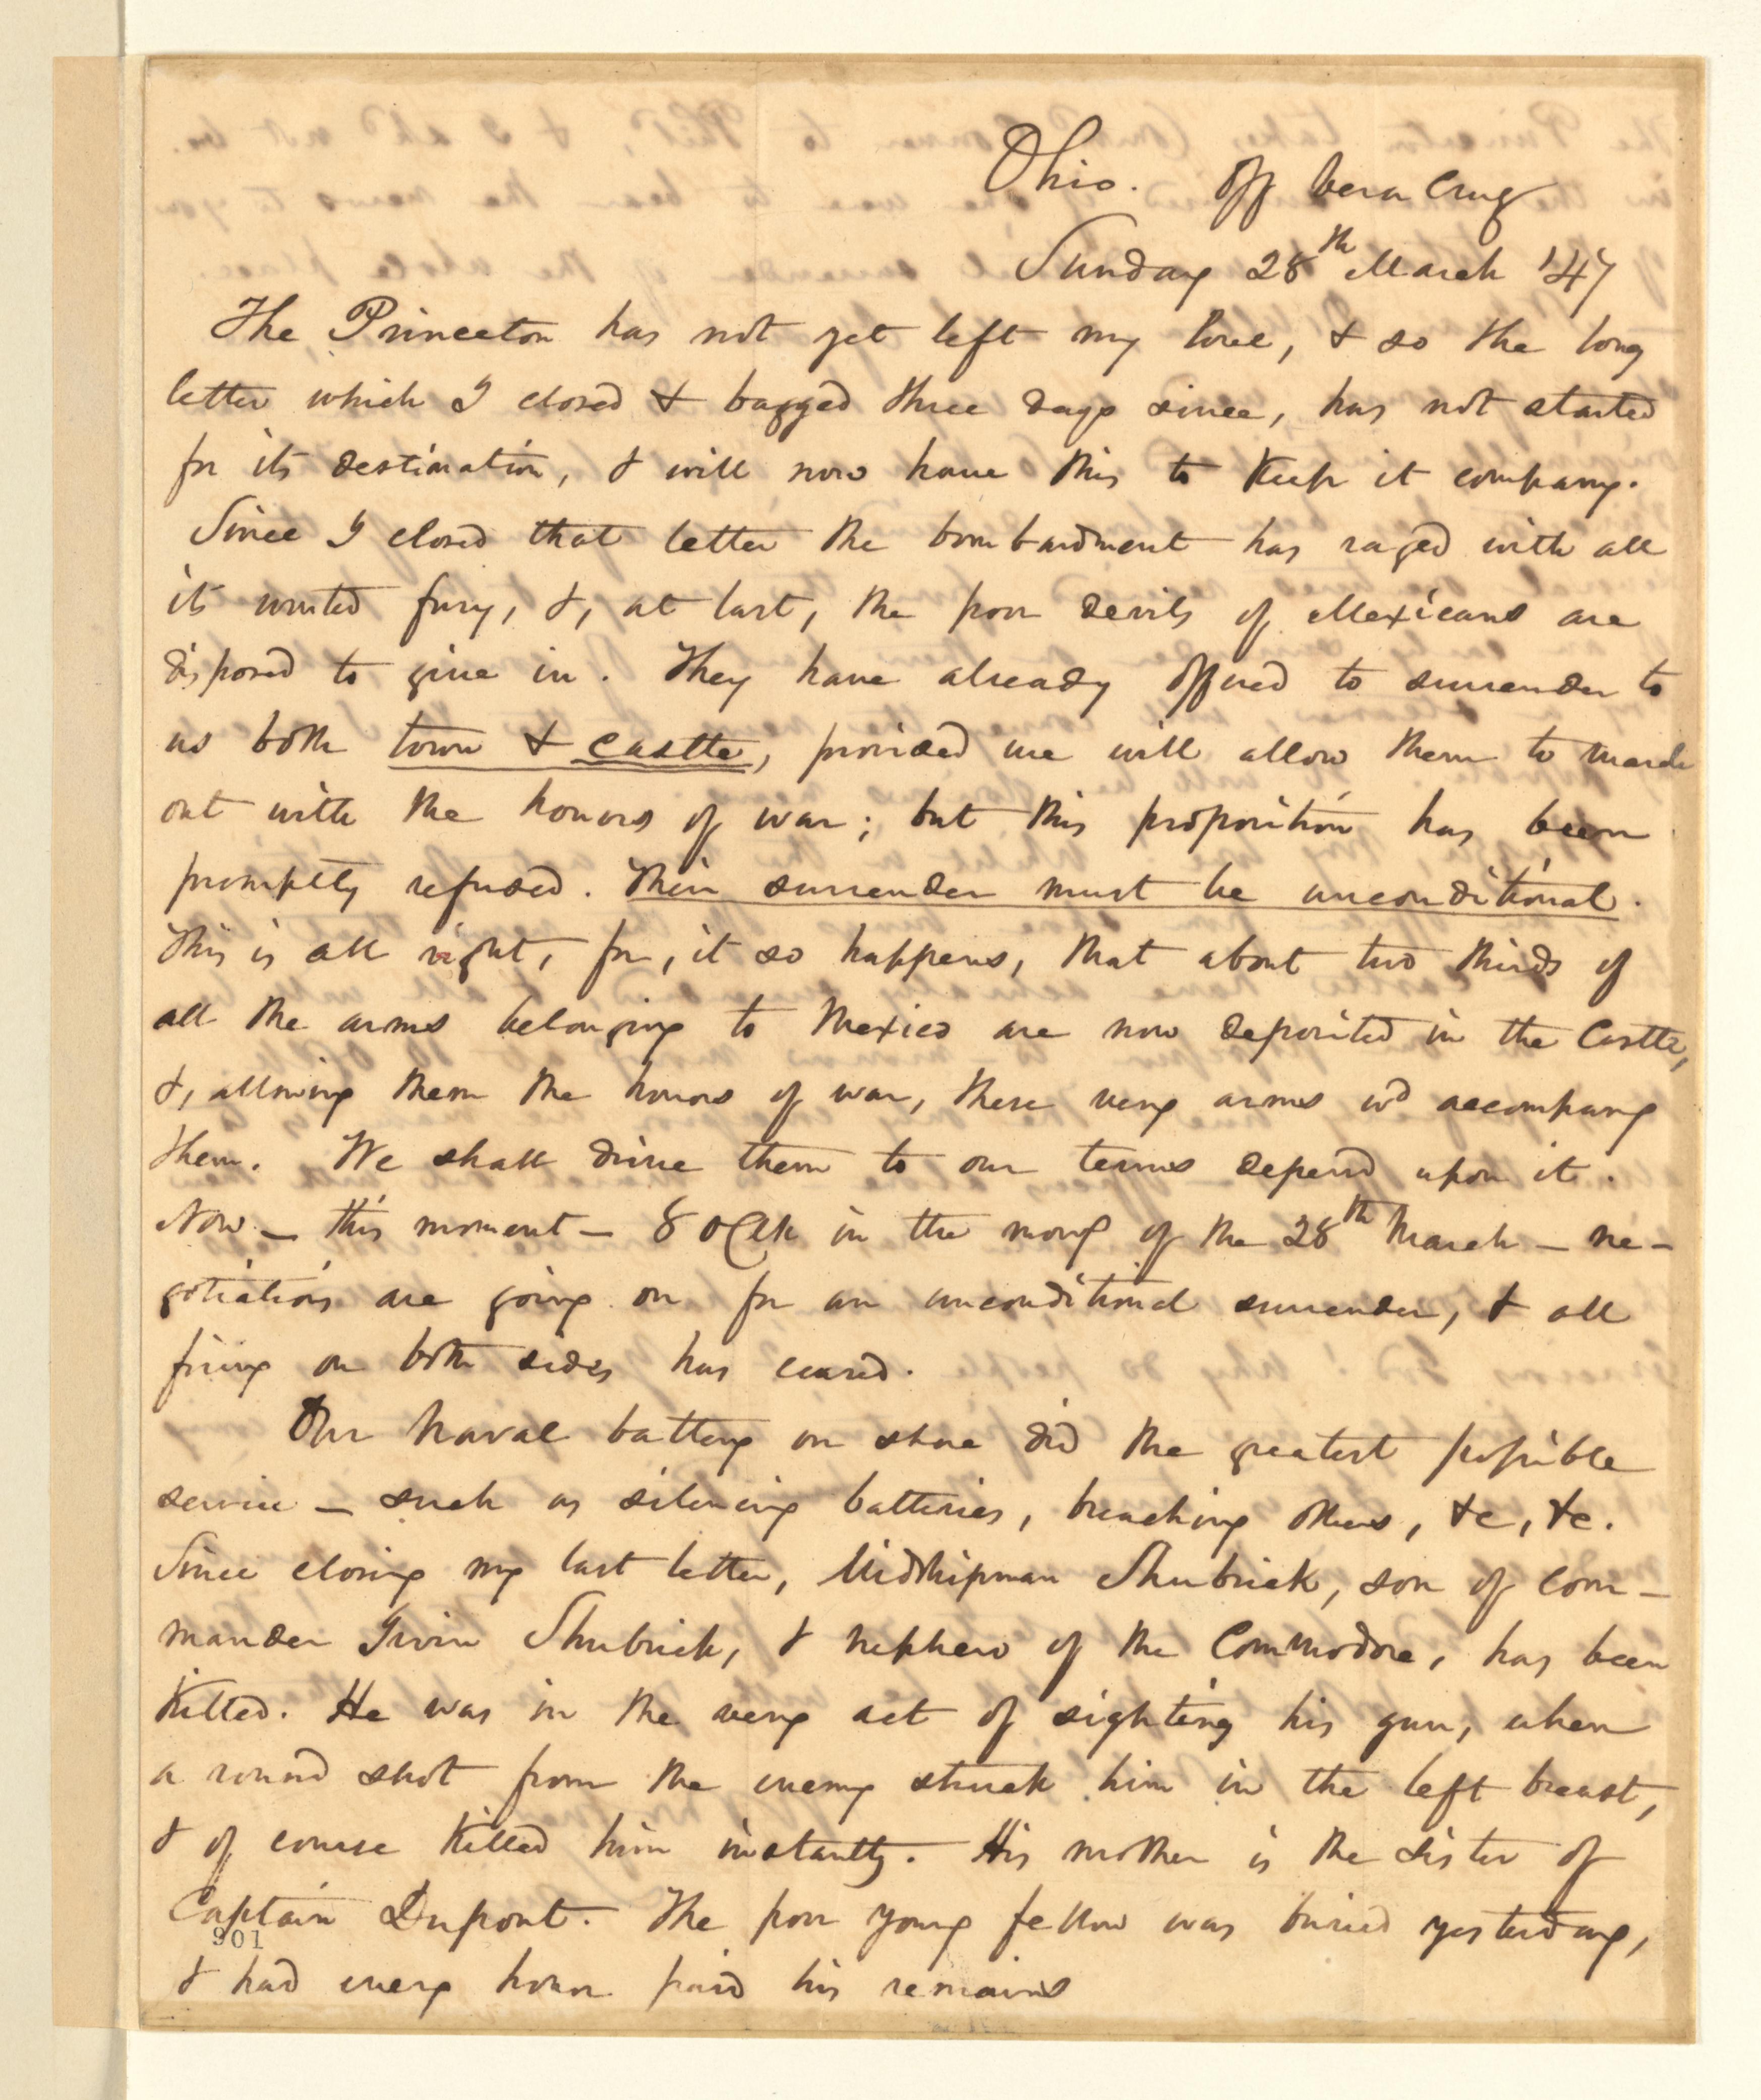 Ohio. Off Vera Cruz
Sunday 28th March '47
The Princeton has not yet left my love, & so the long
letter which I closed & bagged three days since, has not started
for its destination, & will now have this to keep it company.
Since I closed that letter the bombardment has raged with all
its wonted fury, &, at last, the poor devils of Mexicans are
disposed to give in. They have already offered to surrender to
us both town & castle, provided we will allow them to march
out with the honors of war; but this proposition has been
promptly refused. Their surrender must be unconditional.
This is all right, for, it so happens, that about two thirds of
all the arms belonging to Mexico are now deposited in the Castle,
&, allowing them the honors of war, these very arms wd accompany
them. We shall drive them to our terms depend upon it.
Now – this moment – 8 oClk in the morng of the 28th March – ne-
gotiations are going on for an unconditional surrender, & all
firing on both sides has ceased.
Our Naval battery on shore did the greatest possible
service – such as silencing batteries, breaching others, &c, &c.
Since closing my last letter, Midshipman Shubrick, son of Com-
mander Irvin Shubrick, & nephew of the Commodore, has been
killed. He was in the very act of sighting his gun, when
a round shot from the enemy struck him in the left breast,
& of course killed him instantly. His mother is the sister of
Captain Dupont. The poor young fellow was buried yesterday,
901
& had every honor paid his remains